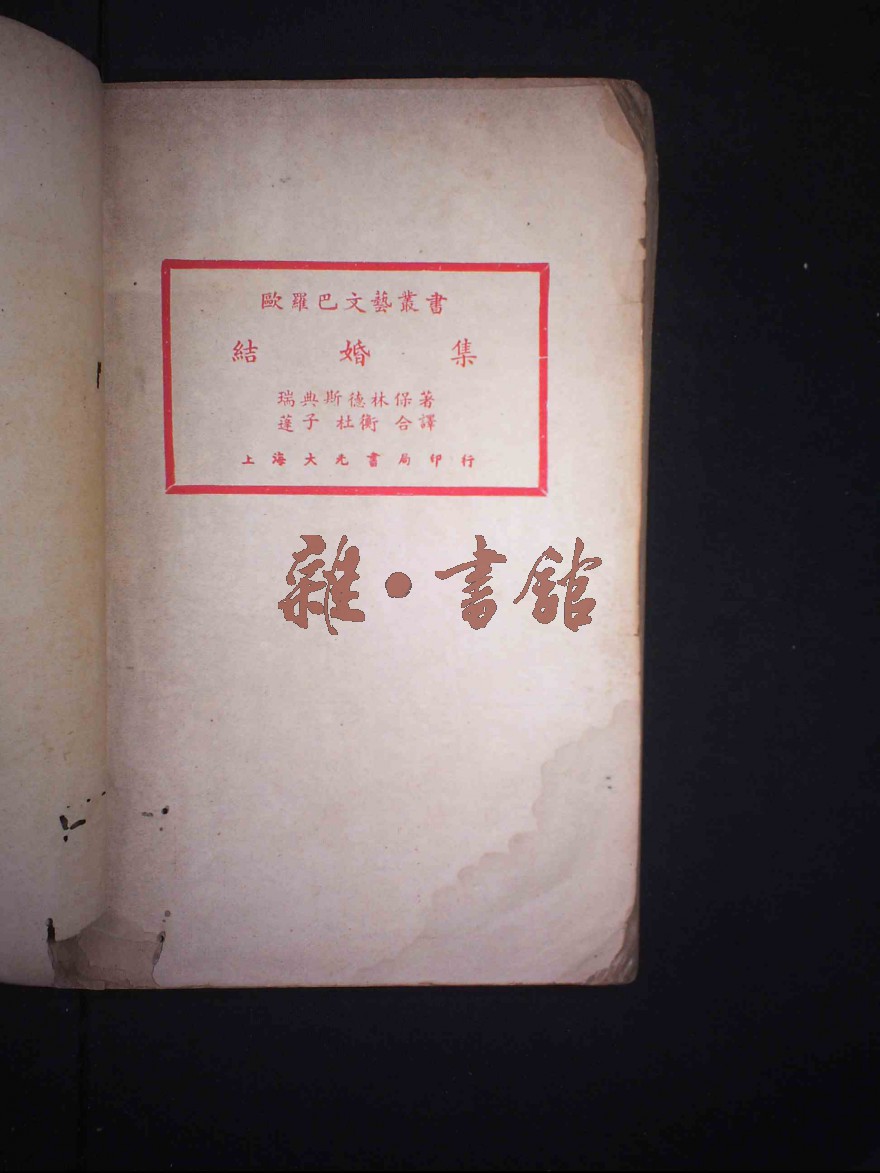 歐羅巴文藝叢書
結婚集
瑞典斯德林保著
蓬子 杜衡 合譯
上海大光書局印行
雜·書館